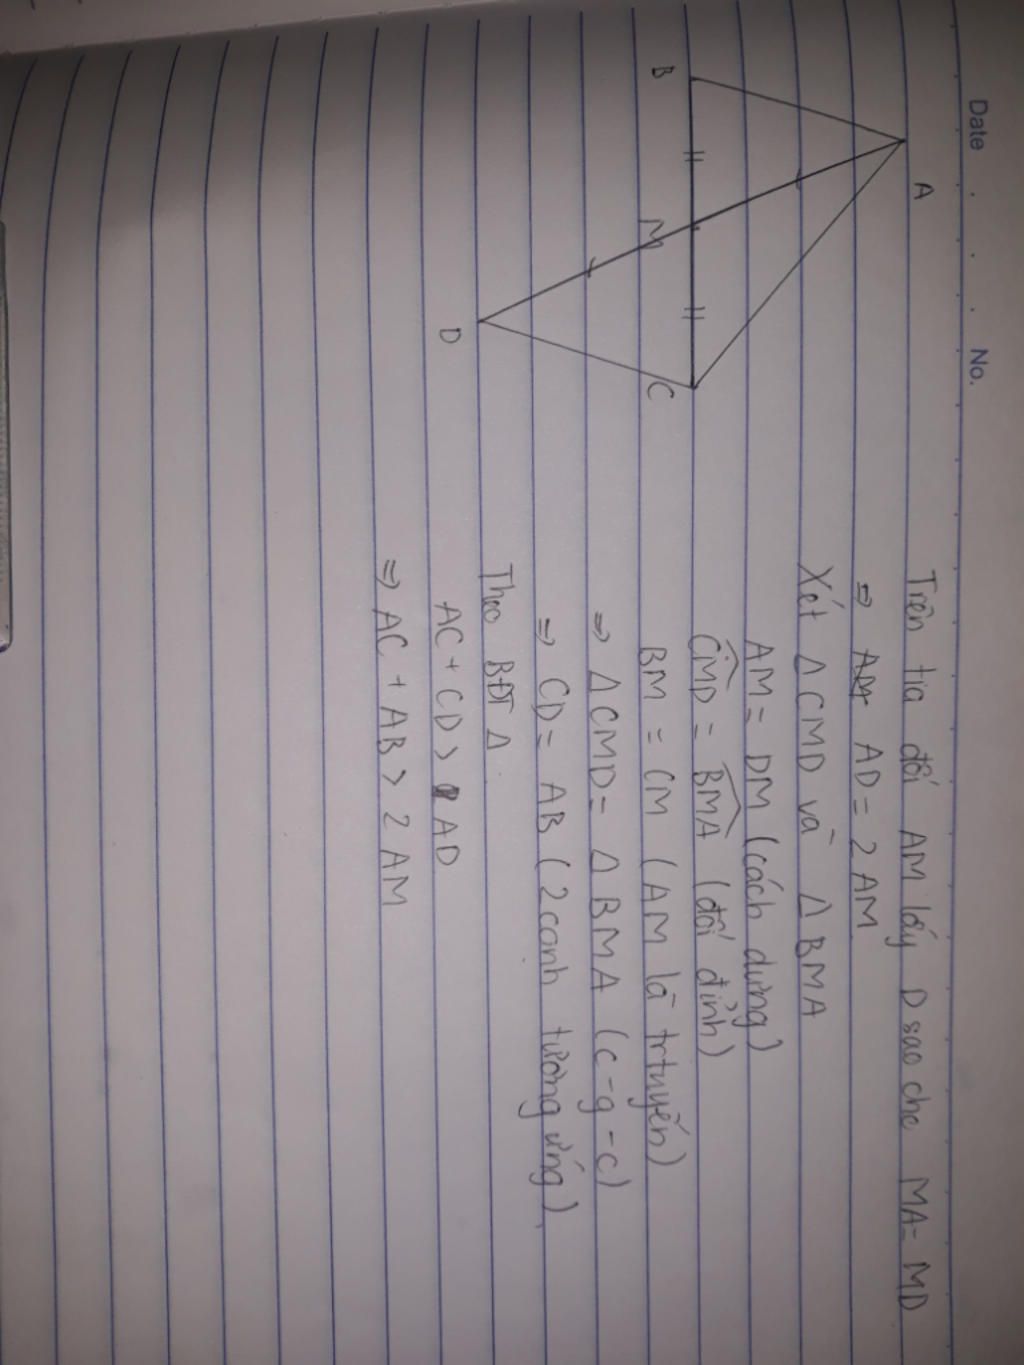 Date . . . No.
A
B
M
C
D
Trên tia đối AM lấy D sao cho MA = MD
⇒ AD = 2AM
Xét Δ CMD và Δ BMA
AM = DM (cách dựng)
CMD = BMA (đối đỉnh)
BM = CM (AM là trtuyến)
⇒ Δ CMD = Δ BMA (c-g-c)
⇒ CD = AB (2 cạnh tương ứng)
Theo BĐT Δ
AC + CD > AD
⇒ AC + AB > 2 AM